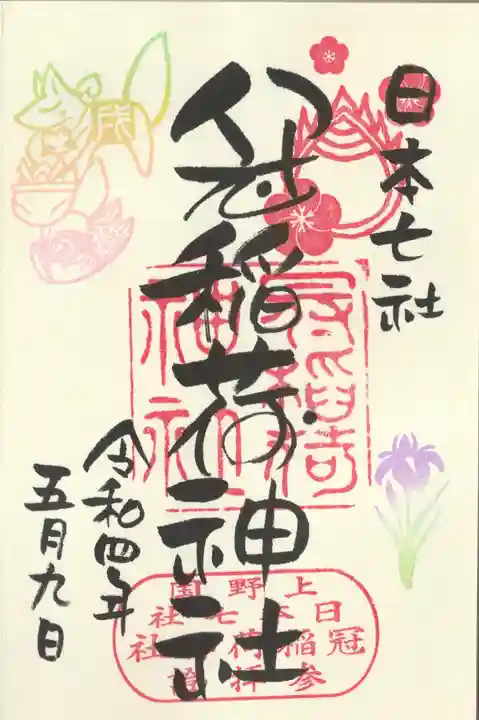 日本七社
冠稲荷神社
令和四年
五月九日
冠稲荷
神社
上野国
日本七社
冠稲荷社
参拝證